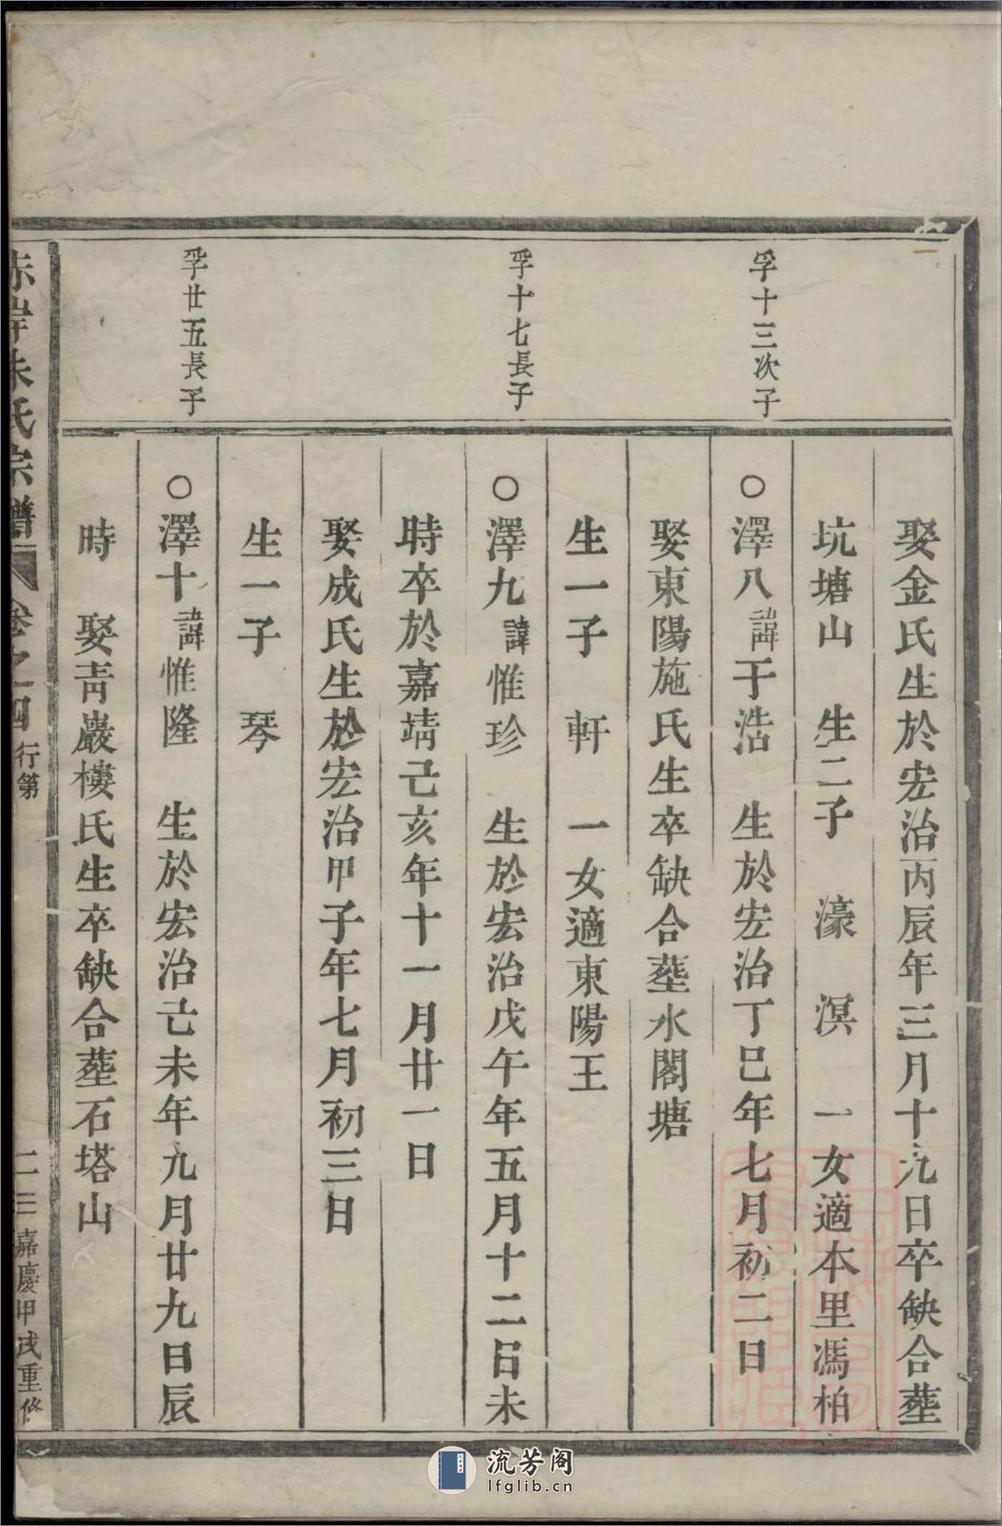 孚十三次子
孚十七長子
孚廿五長子
娶金氏生於宏治丙辰年三月十九日卒缺合塟
坑塘山 生二子 濠 溟 一女適本里馮柏
○澤八諱于浩 生於宏治丁巳年七月初二日
娶東陽施氏生卒缺合塟水閣塘
生一子 軒 一女適東陽王
○澤九諱惟珍 生於宏治戊午年五月十二日未
時卒於嘉靖己亥年十一月廿一日
娶成氏生於宏治甲子年七月初三日
生一子 琴
○澤十諱惟隆 生於宏治己未年九月廿九日辰
時 娶青巖樓氏生卒缺合塟石塔山
赤岸朱氏宗譜 卷之四 行第 二三 嘉慶甲戌重修
流芳阁
lfglib.cn